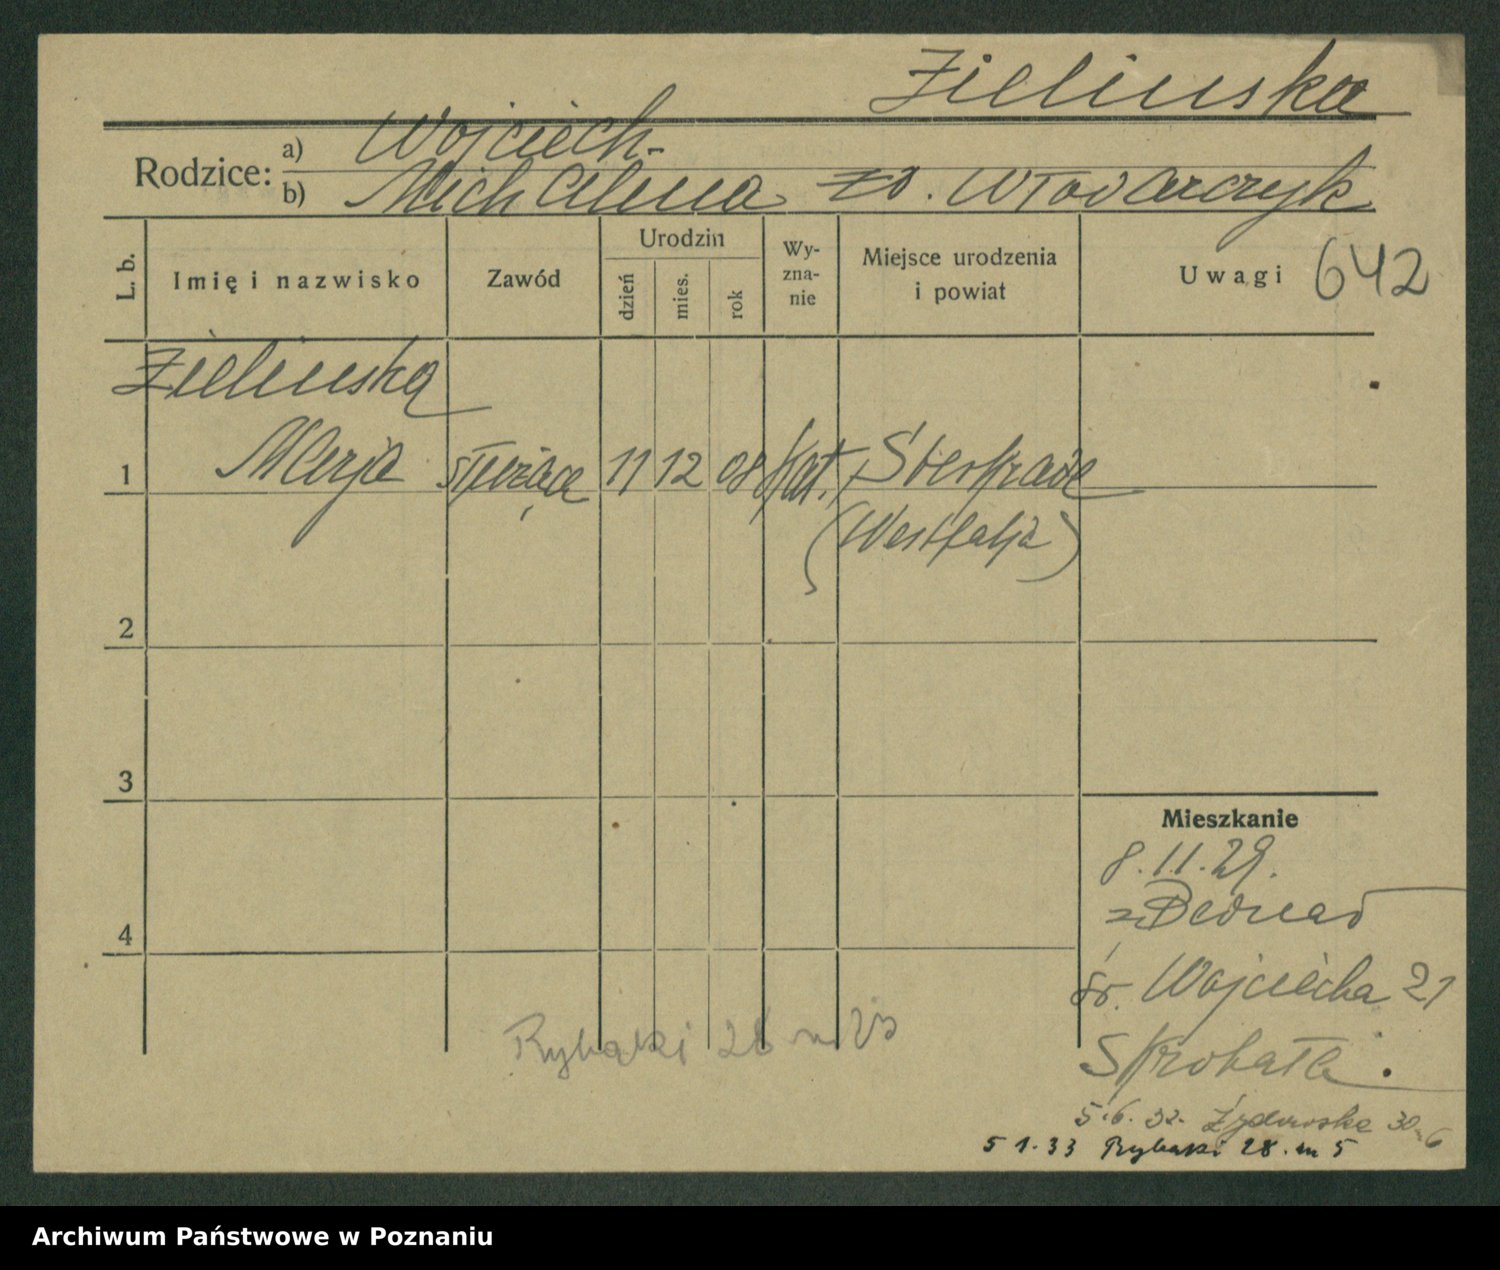 Zielinska
Rodzice: a) Wojciech
b) Michalina zd. Włodarczyk
L. b.
Imię i nazwisko
Zawód
Urodzin
dzień
mies.
rok
Wy-
zna-
nie
Miejsce urodzenia
i powiat
Uwagi 642
Zielinska
1 Marja służąca 11 12 08 kat. Sterkrade
(Westfalja)
2
3
Mieszkanie
8.11.29.
4
św. Wojciecha 21
Skrobała.
Rybaki 28 m
5.6.32. Żydowska 30 m 6
5 1.33 Rybaki 28. m 5
Archiwum Państwowe w Poznaniu